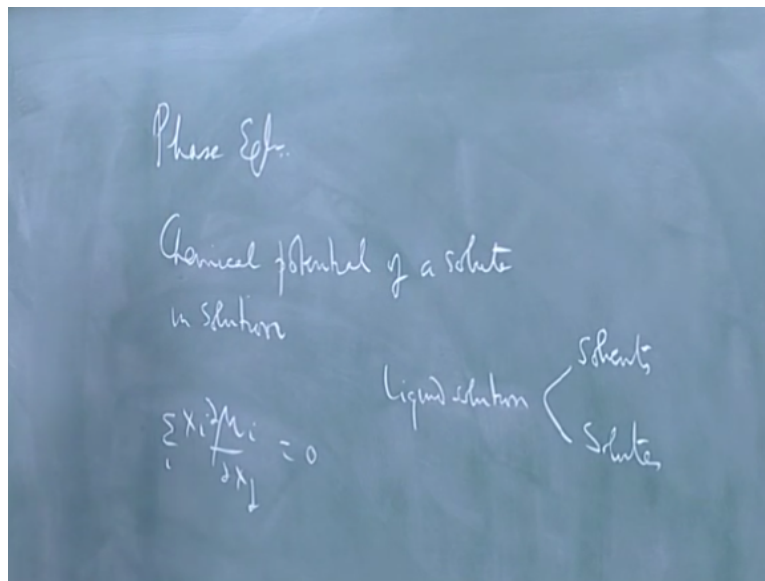 Phase Eqbm.
Chemical potential of a solute
in solution
Liquid solution
Solvents
Solutes
∑_i x_i ∂μ_i/∂x_j = 0